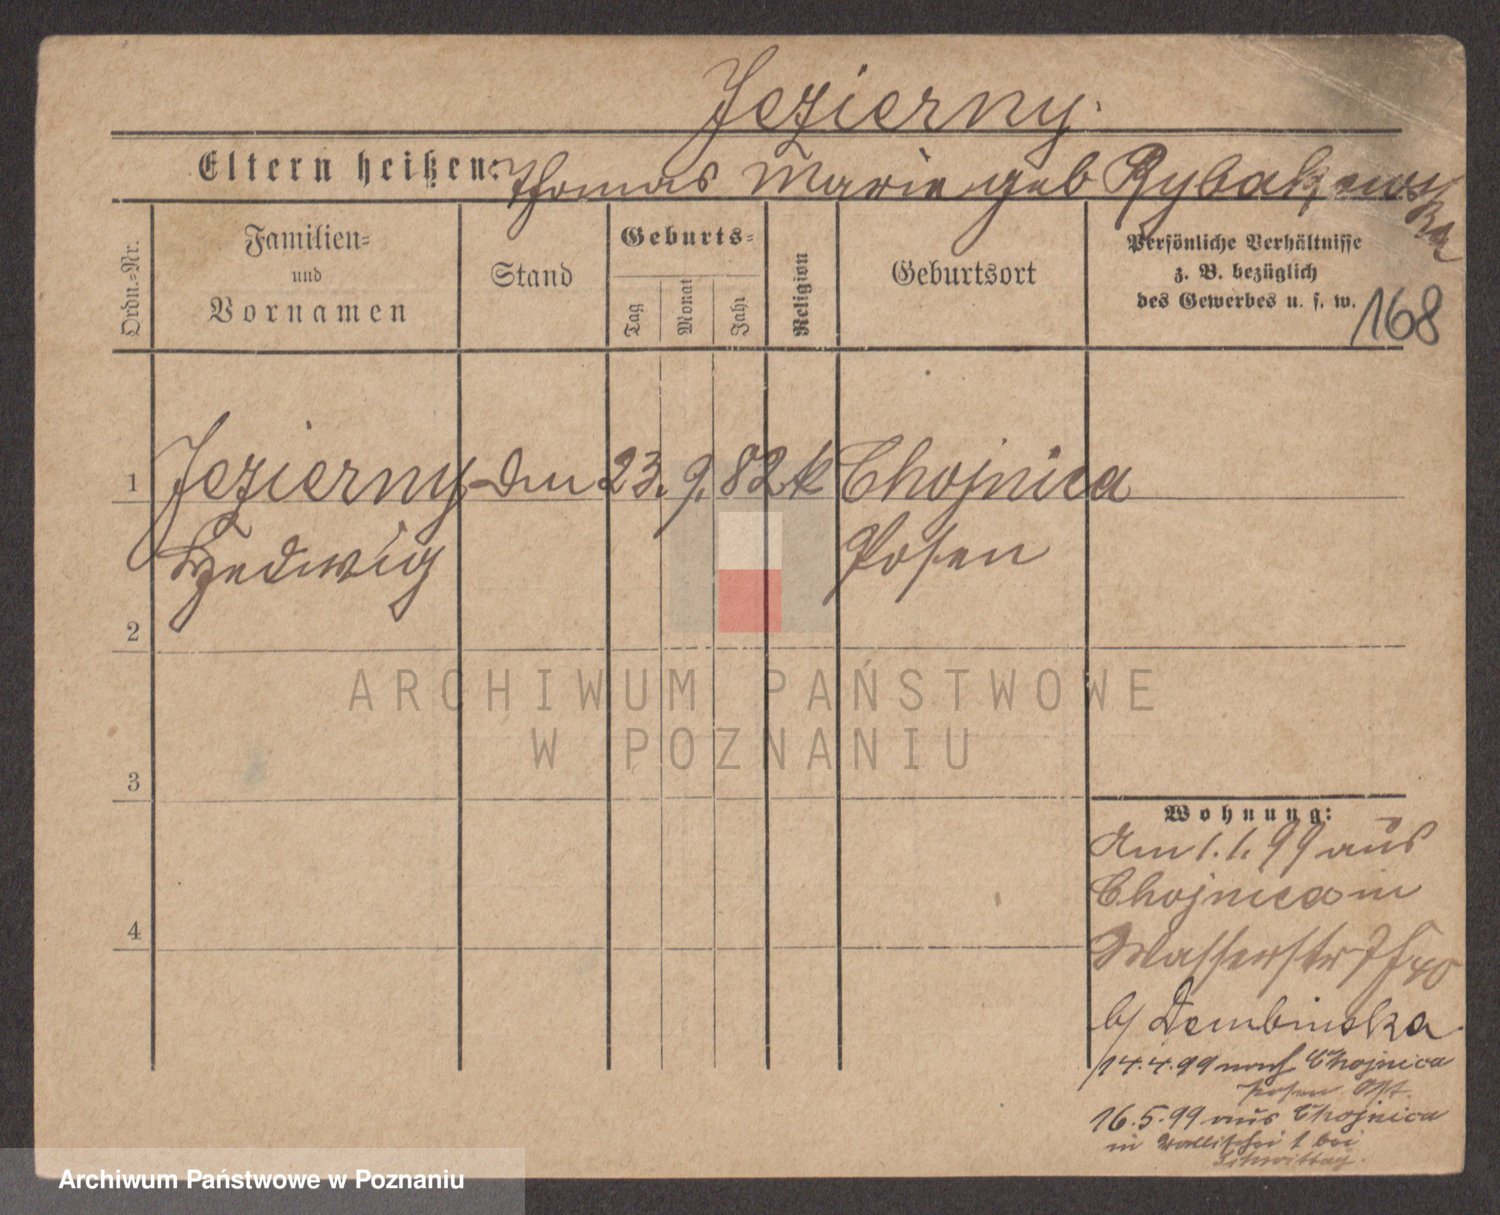 Jezierny.
Eltern heißen: Thomas Marie geb Rybakows
ka
Ordn.-Nr.
Familien-
und
Vornamen
Stand
Geburts-
Tag
Monat
Jahr
Religion
Geburtsort
Persönliche Verhältnisse
z. B. bezüglich
des Gewerbes u. s. w.
168
1 Jezierny 23. 9. 82 k Chojnica
Hedwig Posen
2
3
4
Wohnung:
Am 1.1.99 aus
Chojnica in
Wasserstr 7
b/ Dembinska
14.4.99 nach Chojnica
Posen Ost.
16.5.99 aus Chojnica
in Wallischei 1 bei
ARCHIWUM PAŃSTWOWE
W POZNANIU
Archiwum Państwowe w Poznaniu